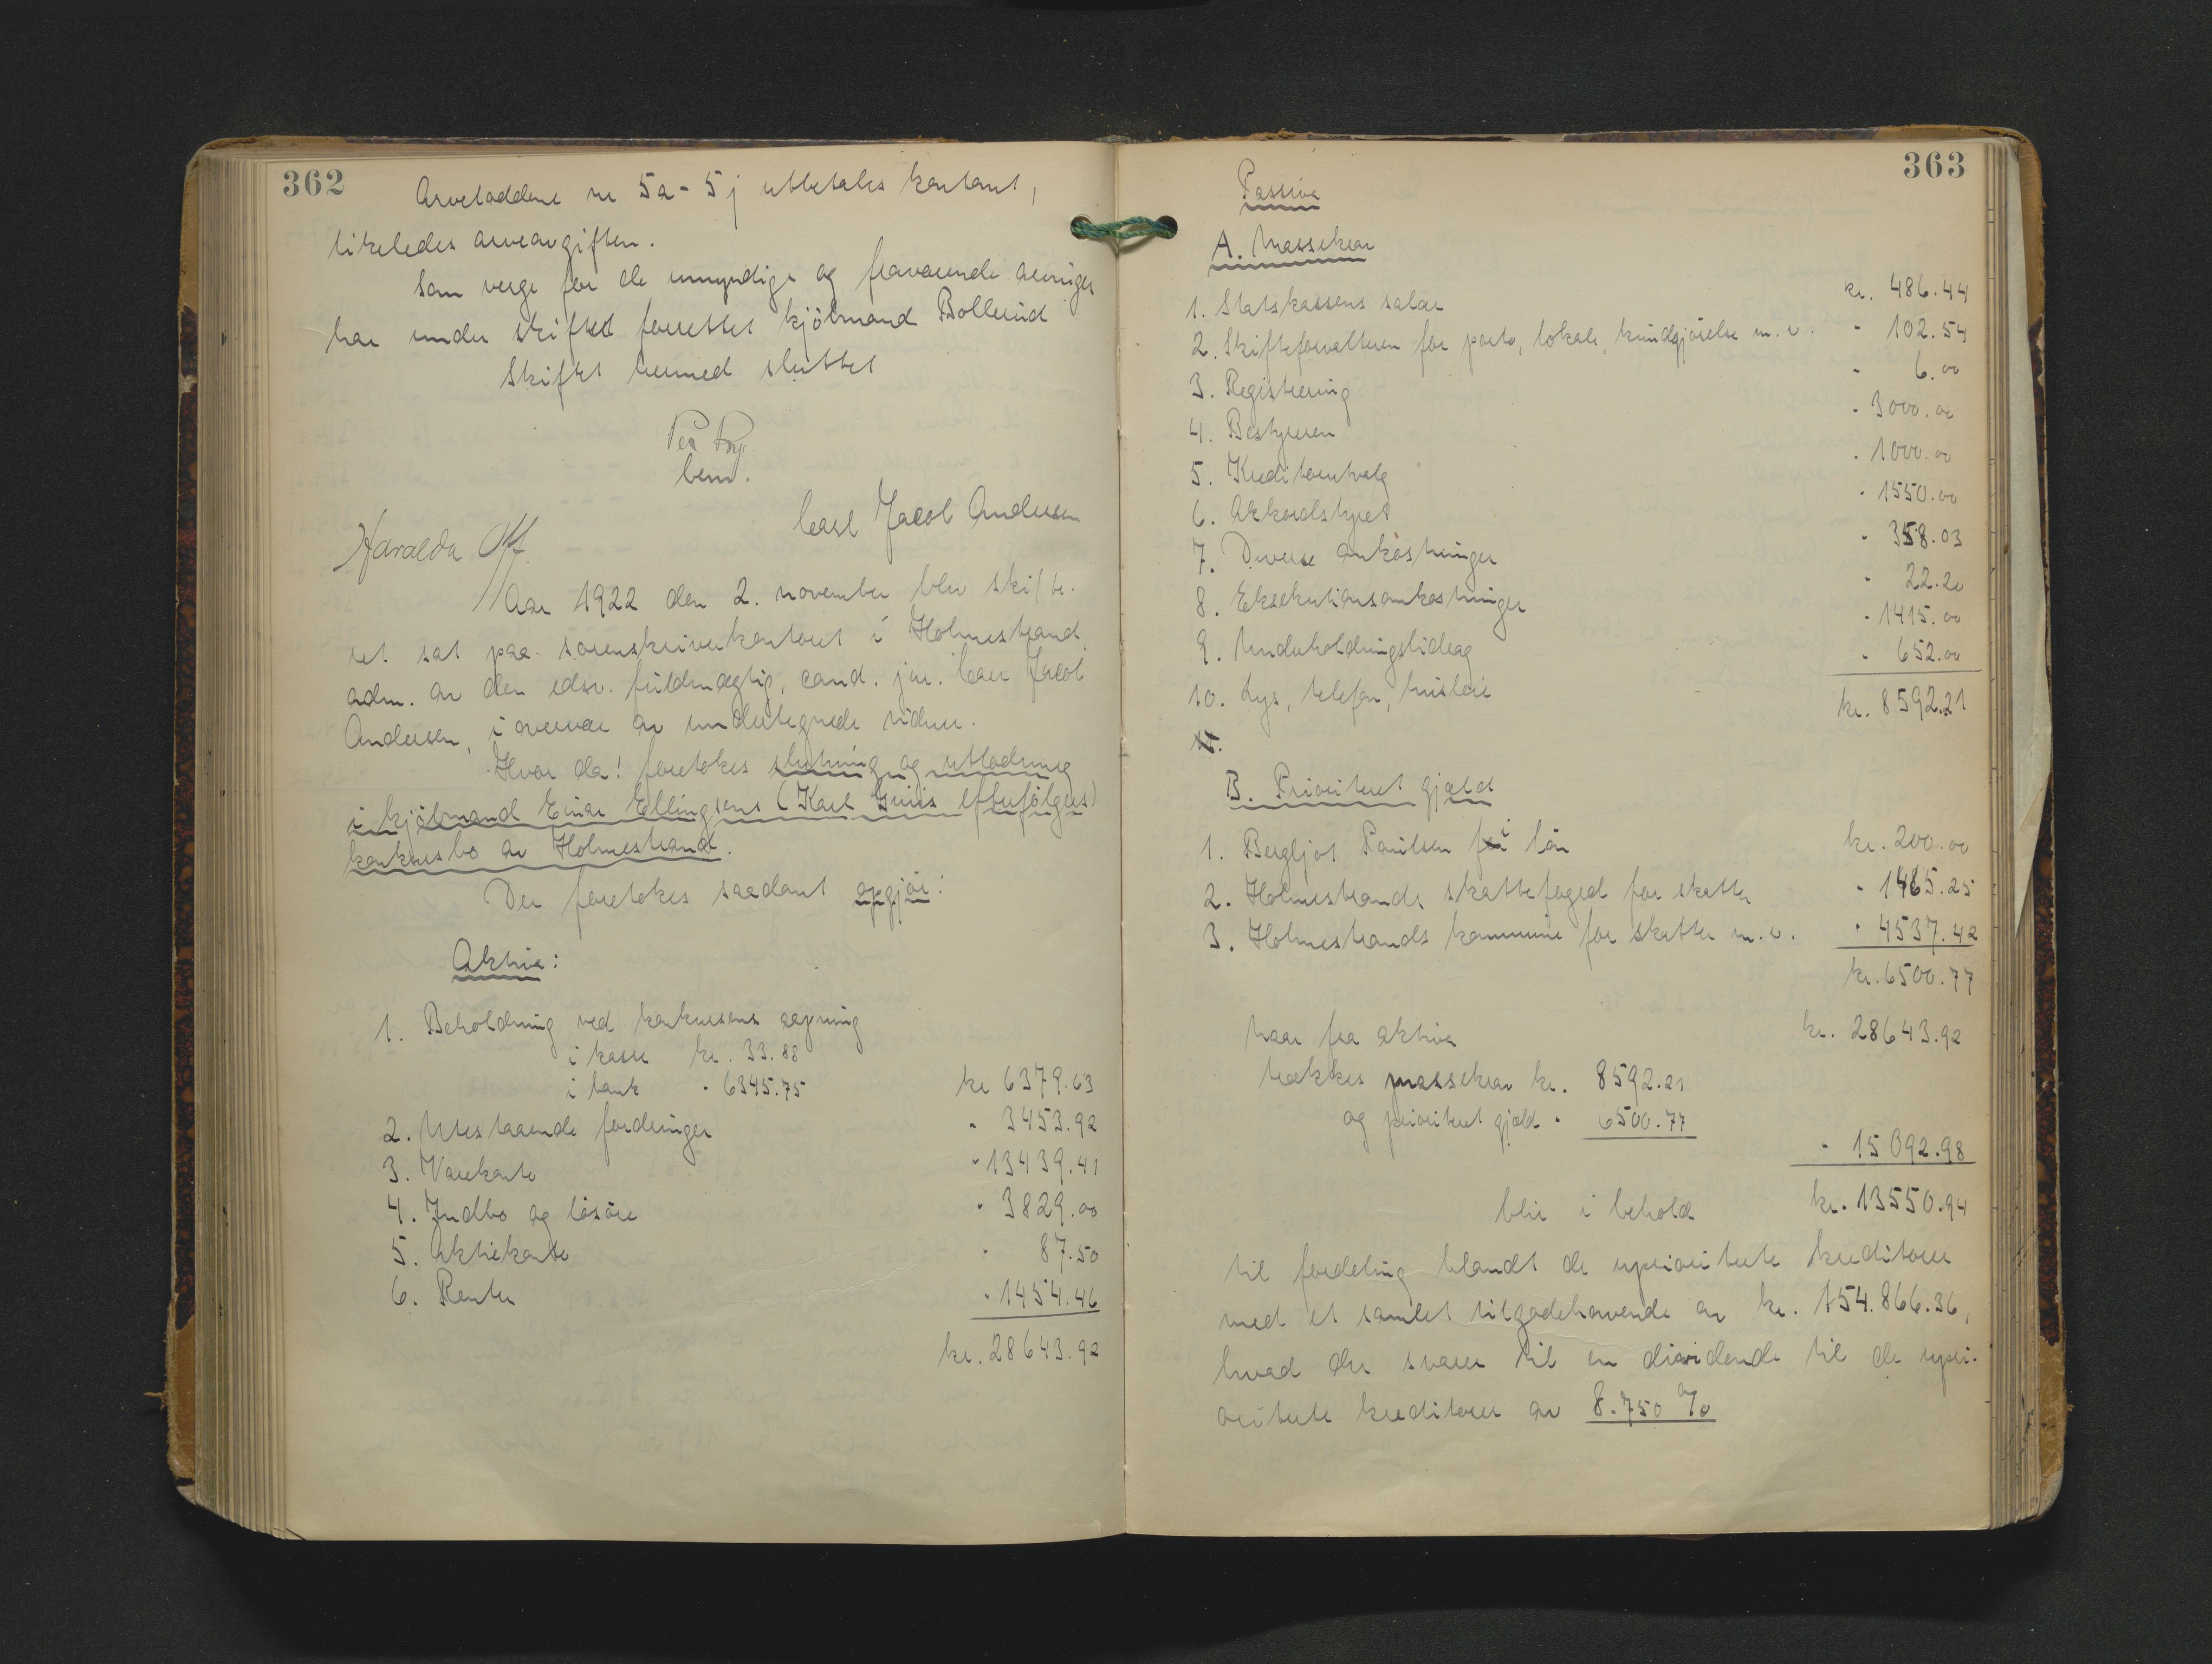 362
Arveloddene nr 5a-5j utbetales kontant,
likeledes arveavgiften.
Som verge for de umyndige og fraværende arvinger
har under skiftet forrettet kjöbmand Bollerud
Skiftet hermed sluttet
Carl Jacob Andersen
Aar 1922 den 2. november blev skifte-
ret sat paa sorenskriverkontoret i Holmestrand
adm. av den edsv. fuldmægtig, cand. jur. Carl Jacob
Andersen, i overvær av undertegnede vidner.
Hvor da! foretokes slutning og utlodning
i kjöbmand Einar Ellingsens (Karl Juuls efterfölgers)
konkursbo av Holmestrand.
Der foretokes saadant opgjör:
Aktiva:
1. Beholdning ved konkursens aapning
i kasse kr. 33.88
i bank " 6345.75 kr 6379.63
2. Utestaaende fordringer " 3453.92
3. Varekonto " 13439.41
4. Indbo og lösöre " 3829.00
5. Aktiekonto " 87.50
6. Renter " 1454.46
kr. 28643.92
363
Passiva
A. Massekrav
1. Statskassens salær kr. 486.44
2. Skifteforvalteren for porto, lokale, kundgjörelse m.v. " 102.54
3. Registrering " 6.00
4. Bestyreren " 3000.00
5. Kreditorutvalg " 1000.00
6. Akkordstyret " 1550.00
7. Diverse omkostninger " 358.03
8. Eksekutionsomkostninger " 22.20
9. Underholdningsbidrag " 1415.00
10. Lys, telefon, husleie " 652.00
kr. 8592.21
B. Prioritert gjæld
1. Bergljot Paulsen i lön kr. 200.00
2. Holmestrands skattefoged for skatter " 1465.25
3. Holmestrands kommune for skatter m.v. " 4537.42
kr. 6500.77
Naar fra aktiva kr. 28643.92
trækkes massekrav kr. 8592.21
og prioritert gjæld " 6500.77
" 15092.98
blir i behold kr. 13550.94
til fordeling blandt de upriorterte kreditorer
med et samlet tilgodehavende av kr. 154.866.36,
hvad der svarer til en dividende til de upri-
oriterte kreditorer av 8.750 %